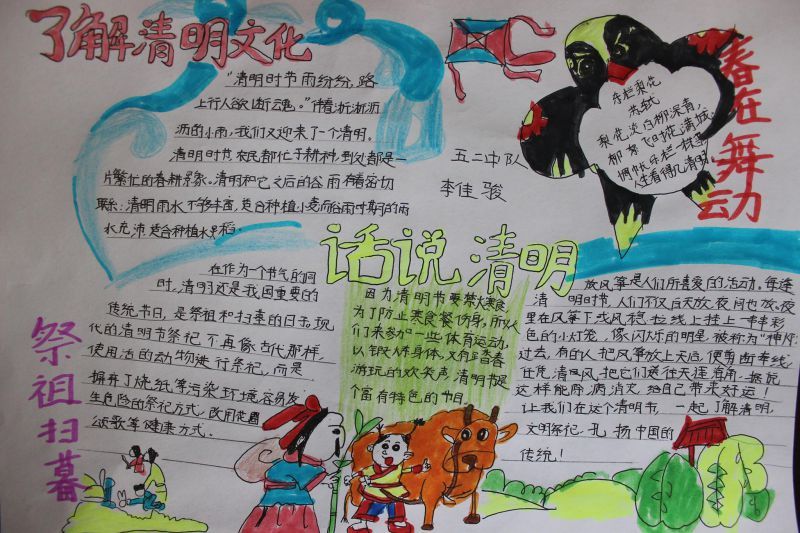 了解清明文化
"清明时节雨纷纷,路
上行人欲断魂。"伴着淅淅沥
沥的小雨,我们又迎来了一个清明。
清明时节,农民都忙于耕种,到处都是一
片繁忙的春耕景象。清明和它之后的谷雨有着密切
联系:清明雨水不够丰富,适合种植小麦而谷雨时期的雨
水充沛适合种植水稻。
五二中队
李佳骏
东栏梨花
苏轼
梨花淡白柳深青,
柳絮飞时花满城。
惆怅东栏一株雪,
人生看得几清明
春在舞动
话说清明
在作为一个节气的同
时,清明还是我国重要的
传统节日,是祭祖和扫墓的日子。现
代的清明节祭祀不再像古代那样
使用活的动物进行祭祀,而是
摒弃了烧纸等污染环境容易发
生危险的祭祀方式,改用花圈
颂歌等健康方式。
祭祖扫墓
因为清明节要禁火寒食
为了防止寒食餐伤身,所以人
们来参加一些体育运动,
以锻炼身体。又有踏青
游玩的欢笑声,清明节是
个富有特色的节日。
放风筝是人们所喜爱的活动,每逢
清明时节,人们不仅白天放,夜间也放。夜
里在风筝下或风稳拉线上挂上一串串彩
色的小灯笼,像闪烁的明星,被称为"神灯"
过去,有的人把风筝放上天后,便剪断牵线,
任凭清风把它们送往天涯海角,据说
这样能除病消灾,给自己带来好运!
让我们在这个清明节,一起了解清明,
文明祭祀,弘扬中国的
传统!